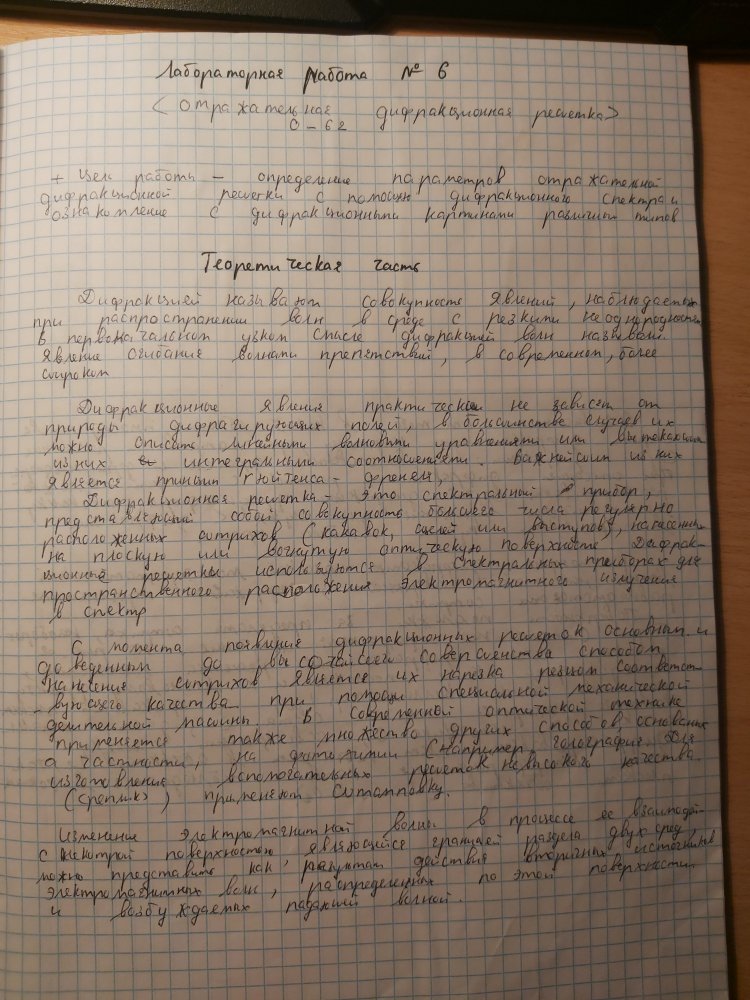 Лабораторная работа № 6
<Отражательная дифракционная решетка>
О-62
+ Цель работы – определение параметров отражательной
дифракционной решетки с помощью дифракционного спектра и
ознакомление с дифракционными картинами различн типов
Теоретическая часть
Дифракцией называют совокупность явлений, наблюдаемых
при распространении волн в среде с резкими неоднородностями
В первоначальном узком смысле дифракцией волн называли
явление огибания волнами препятствий, в современном, более
широком
Дифракционные явления практически не зависят от
природы дифрагирующих полей, в большинстве случаев их
можно описать линейными волновыми уравнениями или вытекающими
из них интегральными соотношениями. Важнейшим из них
является принцип Гюйгенса-Френеля,
Дифракционная решетка – это спектральный прибор,
представляющий собой совокупность большого числа регулярно
расположенных штрихов (канавок, щелей или выступов), нанесенных
на плоскую или вогнутую оптическую поверхность Дифрак-
ционные решетки используются в спектральных приборах для
пространственного расположения электромагнитного излучения
в спектр
С момента появления дифракционных решеток основным и
доведенным до высочайшего совершенства способом
нанесение штрихов является их нарезка резцом соответст-
-вующего качества при помощи специальной механической
делительной машины. В современный оптической технике
применяется также множество других способов основаных
в частности, на фотохимии (например, голография. Для
изготовления вспомогательных решеток невысокого качества.
(реплик) применяют штамповку.
Изменение электромагнитной волны в процессе ее взаимодей-
с некоторой поверхностью, являющейся границей раздела двух сред
можно представить как, результат действия вторичных источников
электромагнитных волн, распределенных по этой поверхности
и возбуждаемых падающей волной.